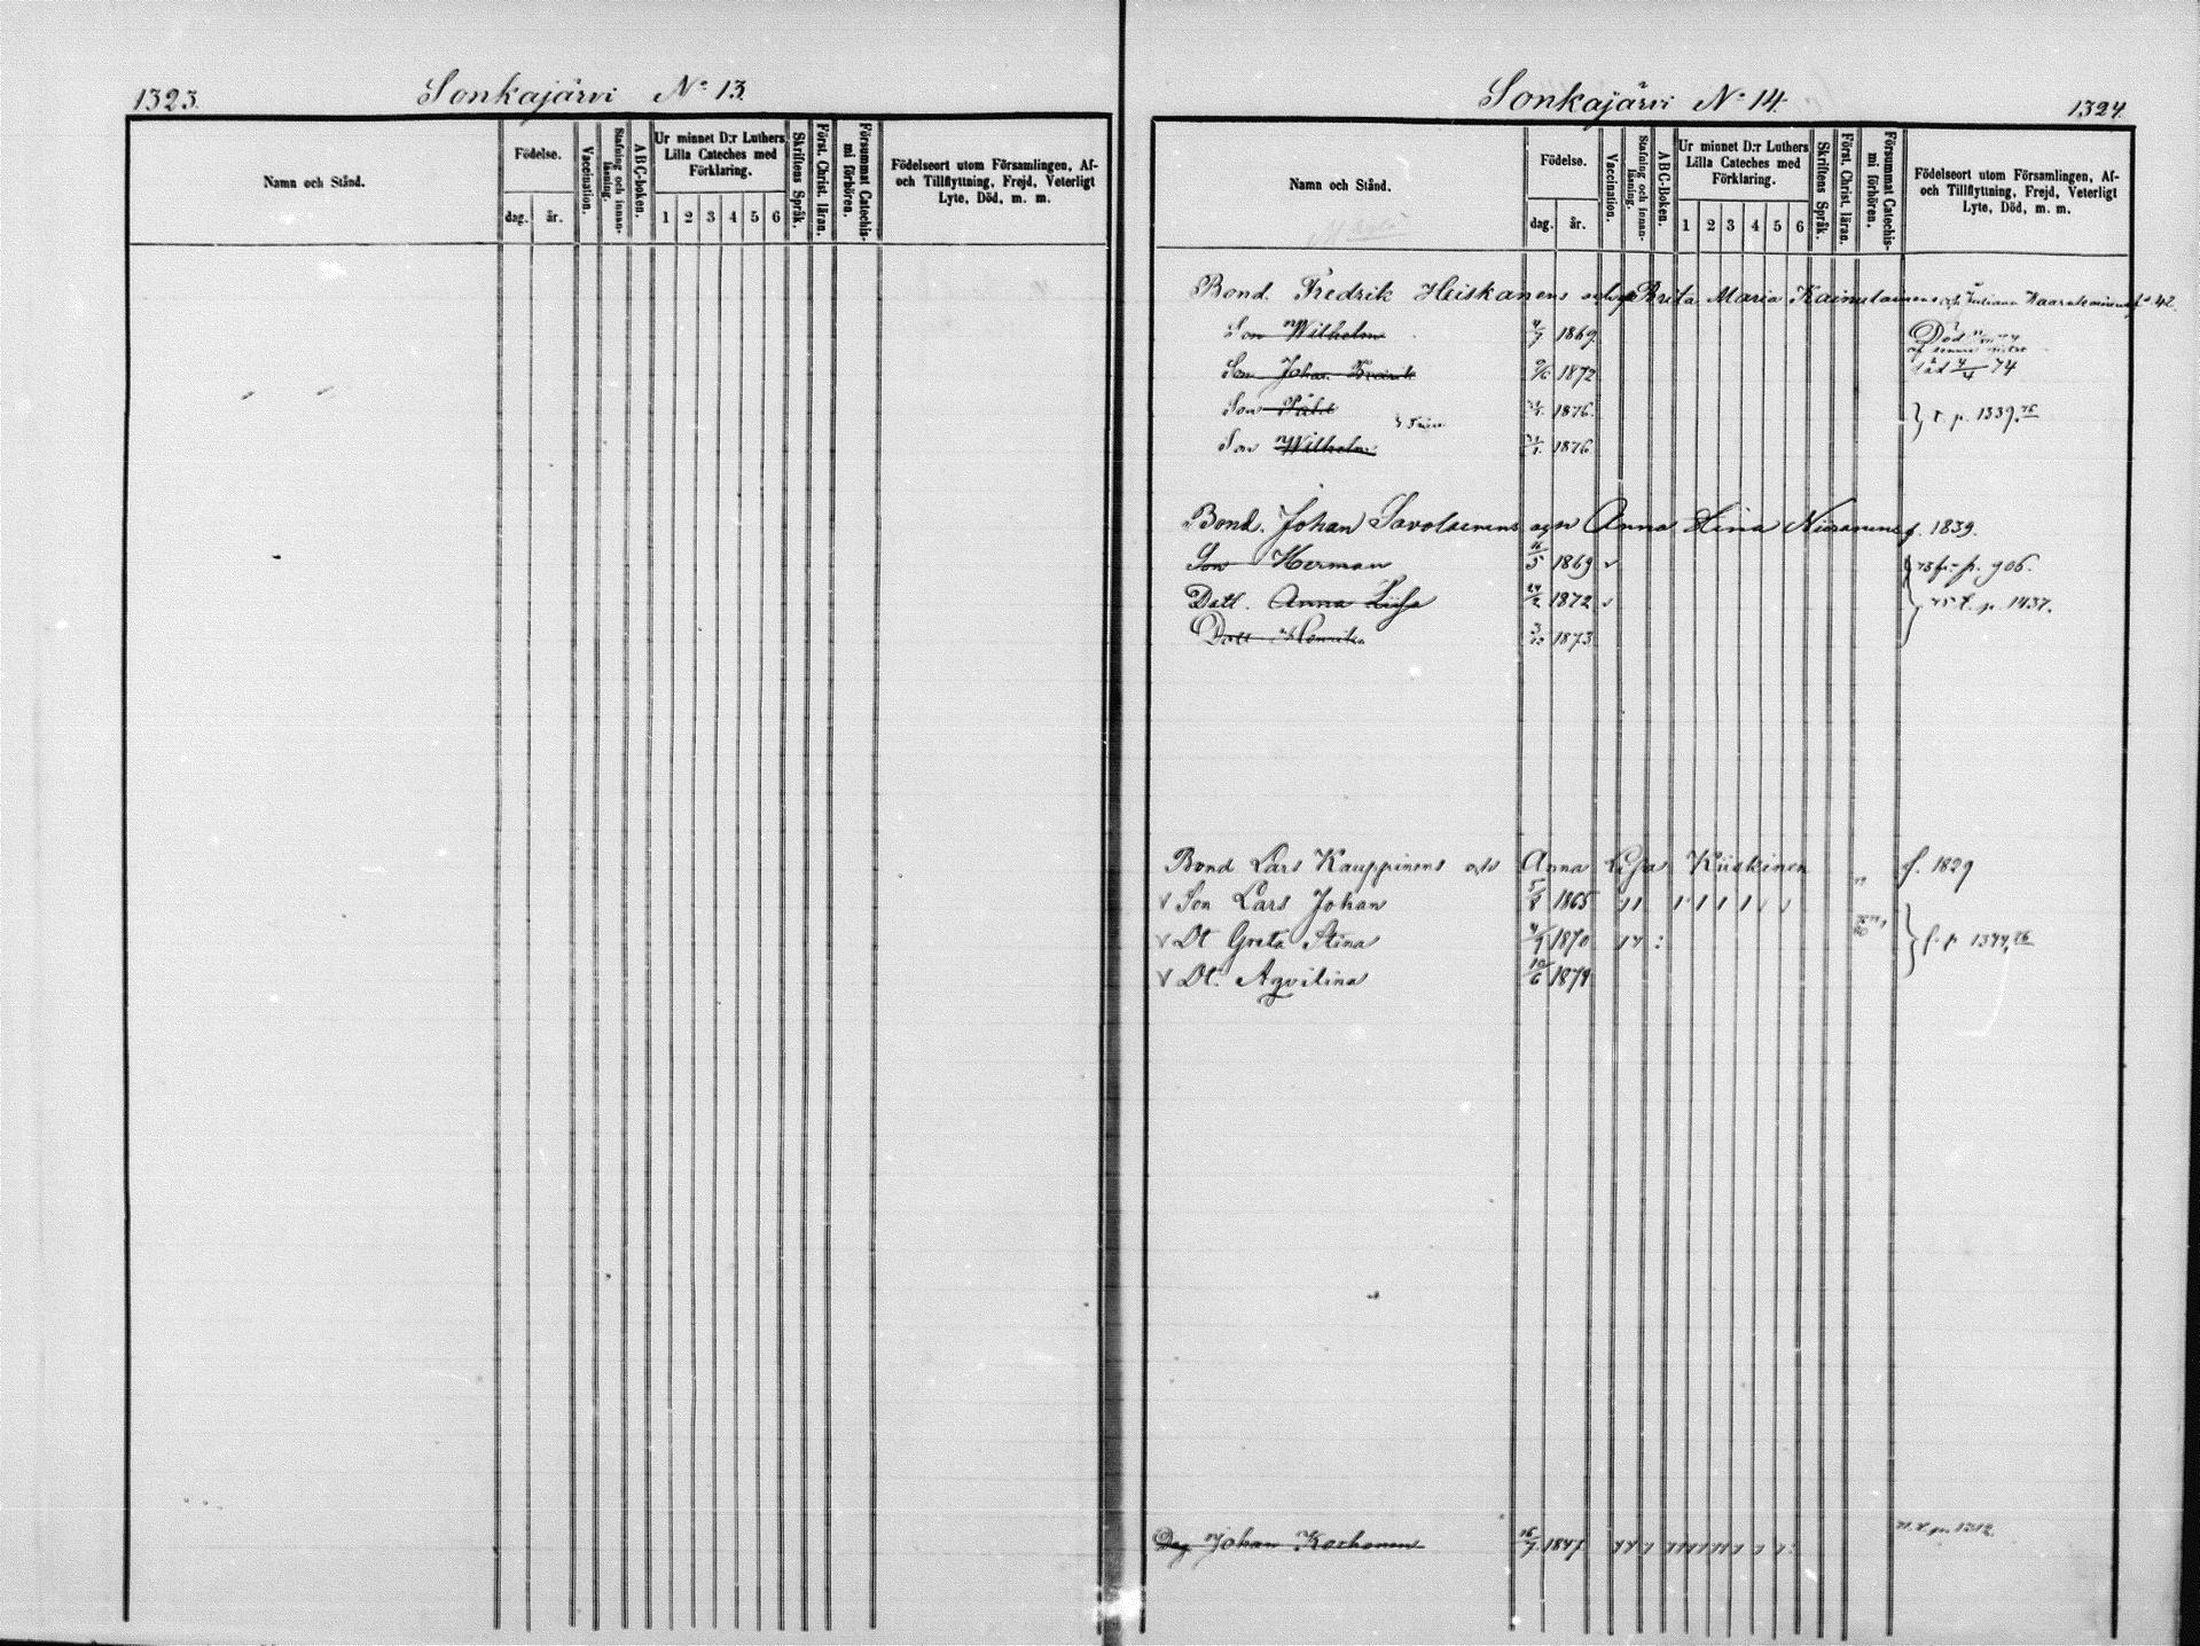 1323.
Sonkajärvi No 13.
Namn och Stånd.
Födelse.
dag. år.
Vaccination.
Stafning och innan-
läsning.
ABC-boken.
Ur minnet D:r Luthers
Lilla Cateches med
Förklaring.
1 2 3 4 5 6
Skriftens Språk.
Först. Christ. läran.
Försummat Catechis-
mi förhören.
Födelseort utom Församlingen, Af-
och Tillflyttning, Frejd, Veterligt
Lyte, Död, m. m.
Sonkajärvi No 14.
1324.
Namn och Stånd.
Födelse.
dag. år.
Vaccination.
Stafning och innan-
läsning.
ABC-Boken.
Ur minnet D:r Luthers
Lilla Cateches med
Förklaring.
1 2 3 4 5 6
Skriftens Språk.
Först. Christ. läran.
Försummat Catechis-
mi förhören.
Födelseort utom Församlingen, Af-
och Tillflyttning, Frejd, Veterligt
Lyte, Död, m. m.
Bond. Fredrik Heiskanens Brita Maria Kainulainens och Juliana 42.
Son Wilhelm 4/7 1869. Död
Son Johan 1872 död 4/4 74
Son 1876. } t. p. 1339.76
Son Wilhelm 1876
Bond. Johan Savolainens Anna Lina Niiranens f. 1839.
Son Herman 16/5 1869 fr. p. 906.
Dott. Anna Lisa 24/2 1872 75 t. p. 1437.
Dott Henrika 3/12 1873
Bond Lars Kauppinens o. h. Anna Lisa Kiiskinen f. 1829
v Son Lars Johan 5/8 1865
v Dt Greta Stina 4/9 1870 } f. p 1344,76
v Dt. Aqvilina 10/6 1879
Dag Johan Korhonen 16/7. 1847 t. p. 1212.